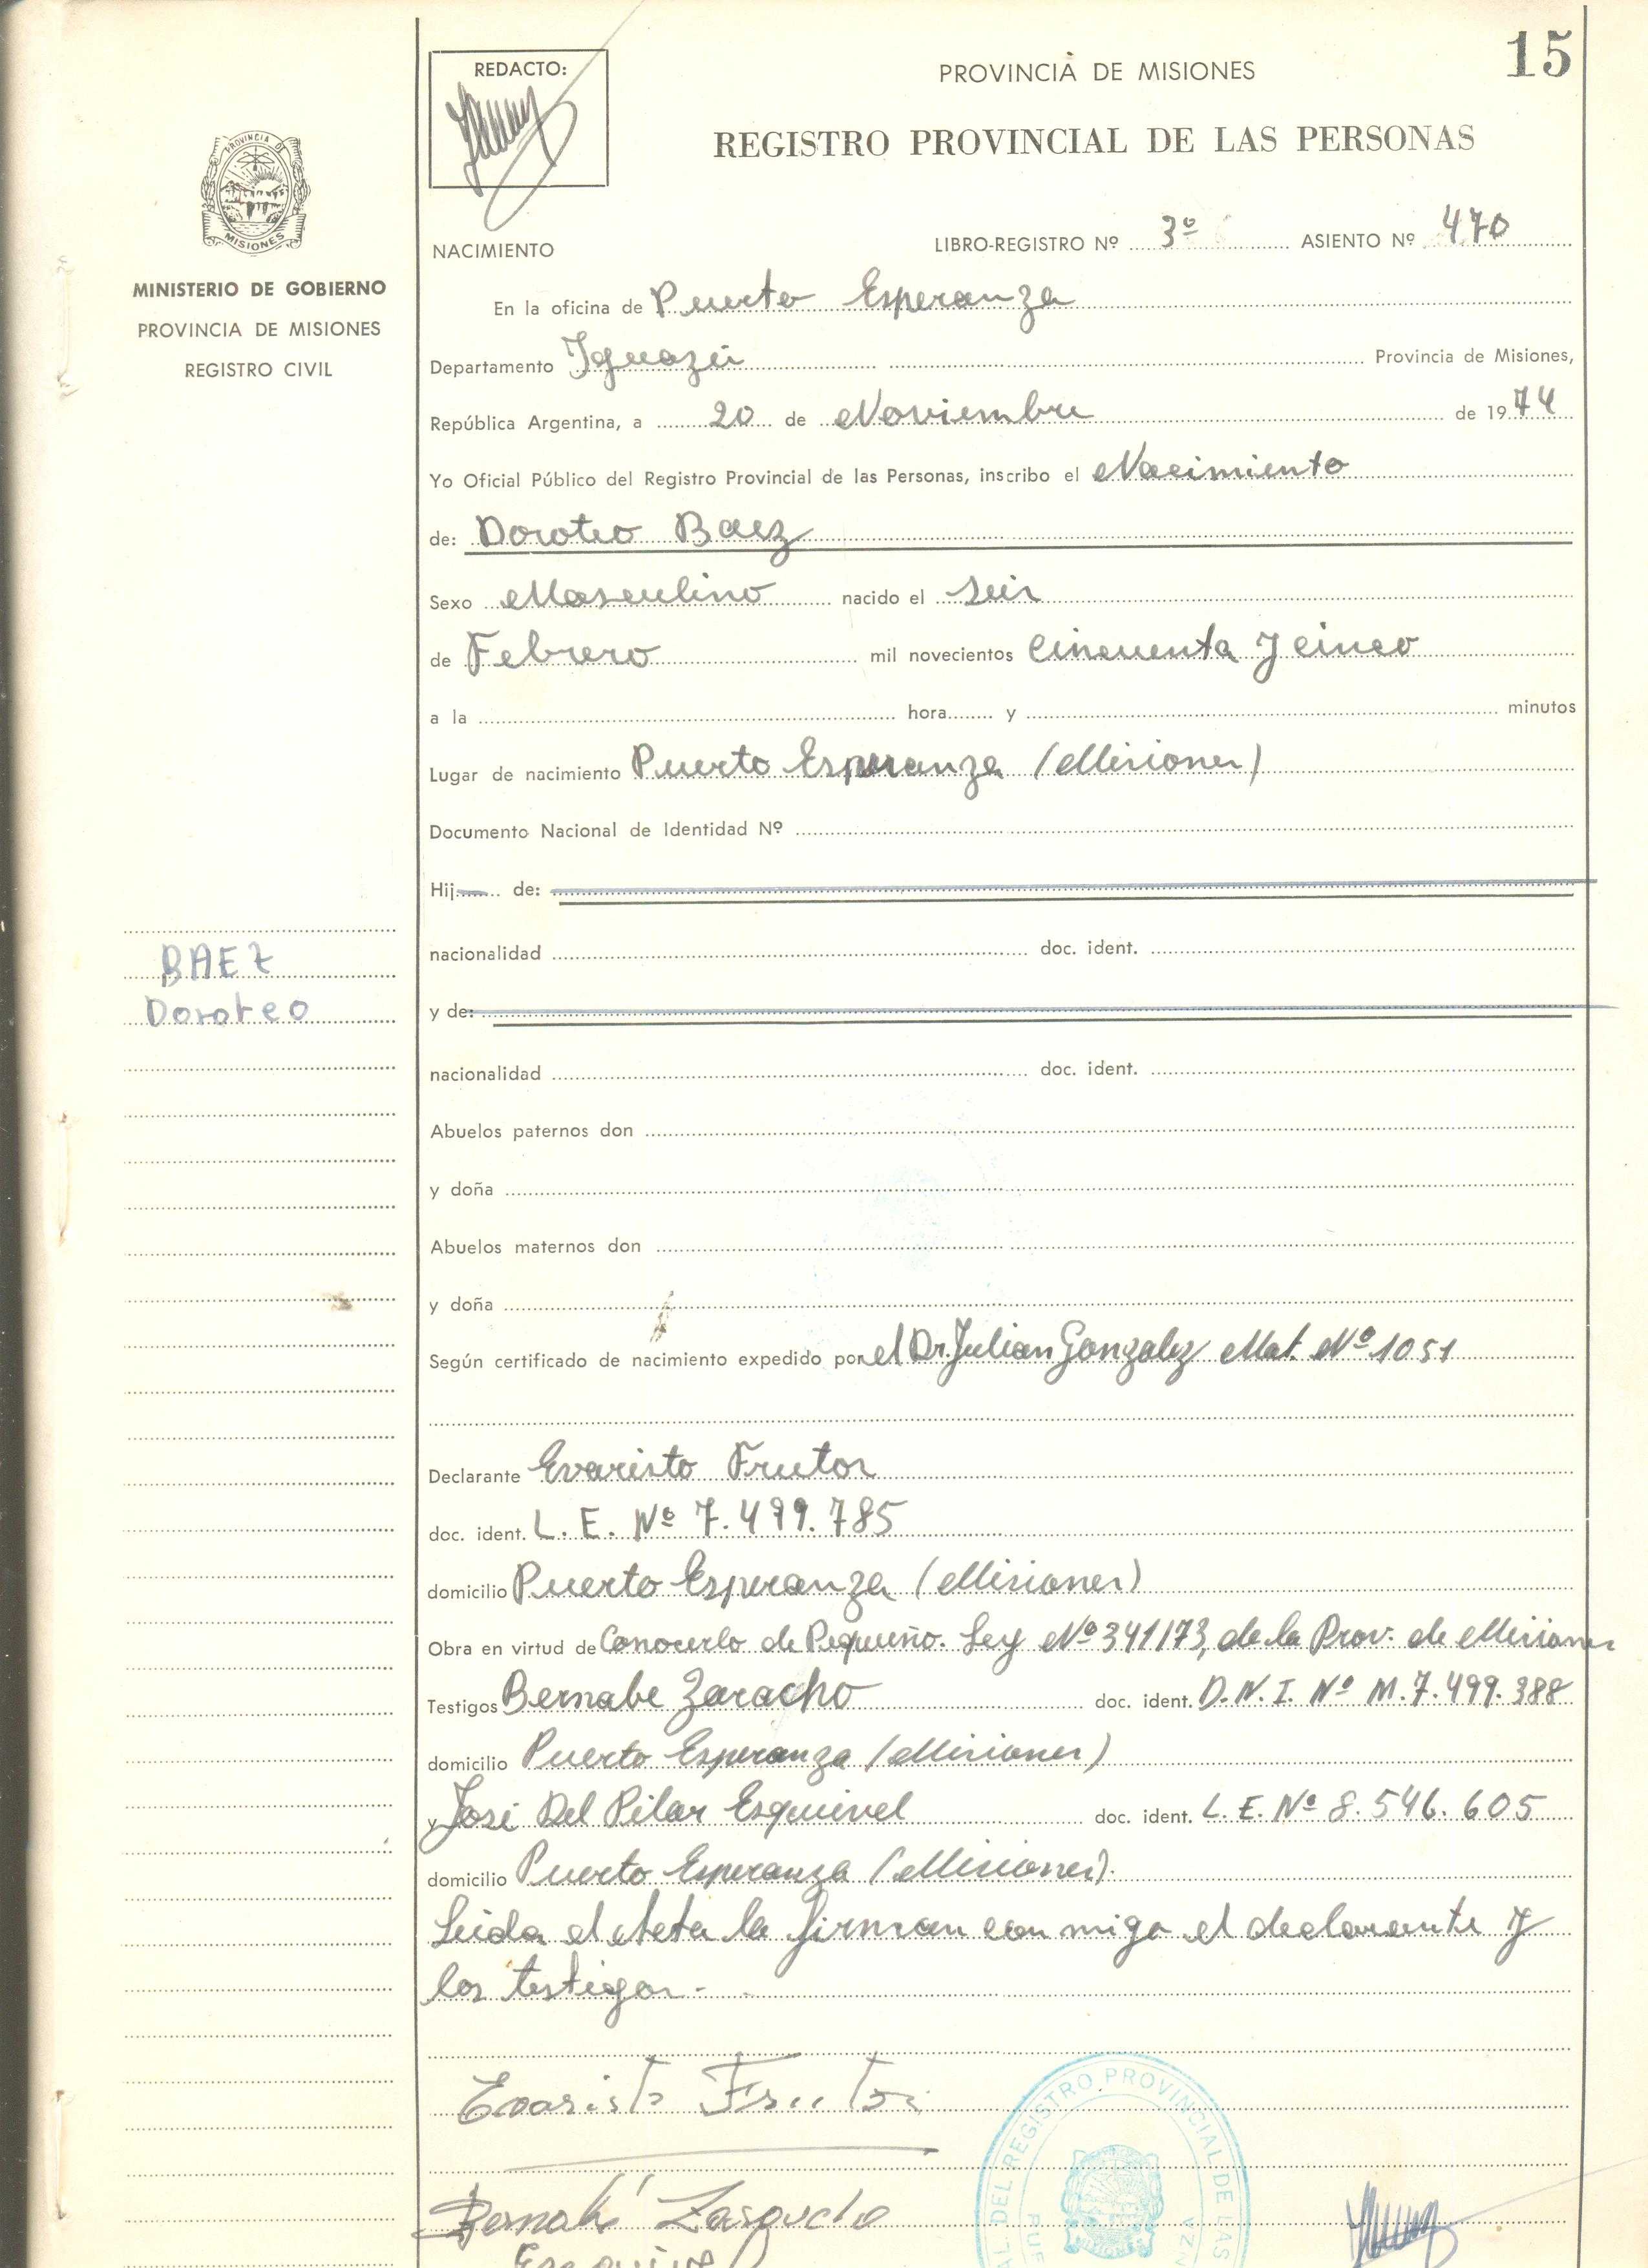 15
REDACTO:
PROVINCIA DE MISIONES
REGISTRO PROVINCIAL DE LAS PERSONAS
PROVINCIA DE
MISIONES
MINISTERIO DE GOBIERNO
PROVINCIA DE MISIONES
REGISTRO CIVIL
NACIMIENTO
LIBRO-REGISTRO Nº 3º ASIENTO Nº 470
En la oficina de Puerto Esperanza
Departamento Iguazú Provincia de Misiones,
República Argentina, a 20 de Noviembre de 1974
Yo Oficial Público del Registro Provincial de las Personas, inscribo el Nacimiento
de: Doroteo Baez
Sexo Masculino nacido el seis
de Febrero mil novecientos cincuenta y cinco
a la hora y minutos
Lugar de nacimiento Puerto Esperanza (Misiones)
Documento Nacional de Identidad Nº
Hij de:
nacionalidad doc. ident.
BAEZ
Doroteo
y de:
nacionalidad doc. ident.
Abuelos paternos don
y doña
Abuelos maternos don
y doña
Según certificado de nacimiento expedido por el Dr. Julian Gonzalez Mat. Nº 1051
Declarante Evaristo Frutos
doc. ident. L. E. Nº 7.499.785
domicilio Puerto Esperanza (Misiones)
Obra en virtud de Conocerlo de Pequeño. Ley Nº 341173, de la Prov. de Misiones
Testigos Bernabe Zaracho doc. ident. D.N.I. Nº M.7.499.388
domicilio Puerto Esperanza (Misiones)
y José Del Pilar Esquivel doc. ident. L.E. Nº 8.546.605
domicilio Puerto Esperanza (Misiones).
Leida el Acta la firman conmigo el declarante y
los testigos.-
Evaristo Frutos
Bernabé Zaracho
Esquivel
DEL REGISTRO PROVINCIAL DE LAS